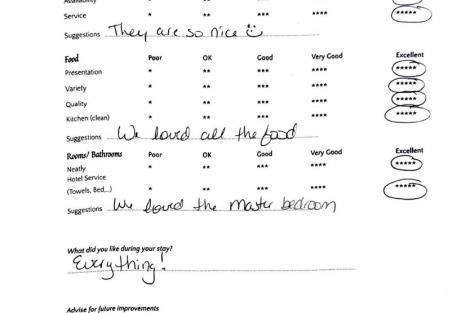 Service * ** *** **** *****
Suggestions They are so nice ☺
Food Poor OK Good Very Good Excellent
Presentation * ** *** **** *****
Variety * ** *** **** *****
Quality * ** *** **** *****
Kitchen (clean) * ** *** **** *****
Suggestions We loved all the food
Rooms/ Bathrooms Poor OK Good Very Good Excellent
Neatly * ** *** **** *****
Hotel Service
(Towels, Bed...) * ** *** **** *****
Suggestions We loved the master bedroom
What did you like during your stay?
Everything!
Advise for future improvements